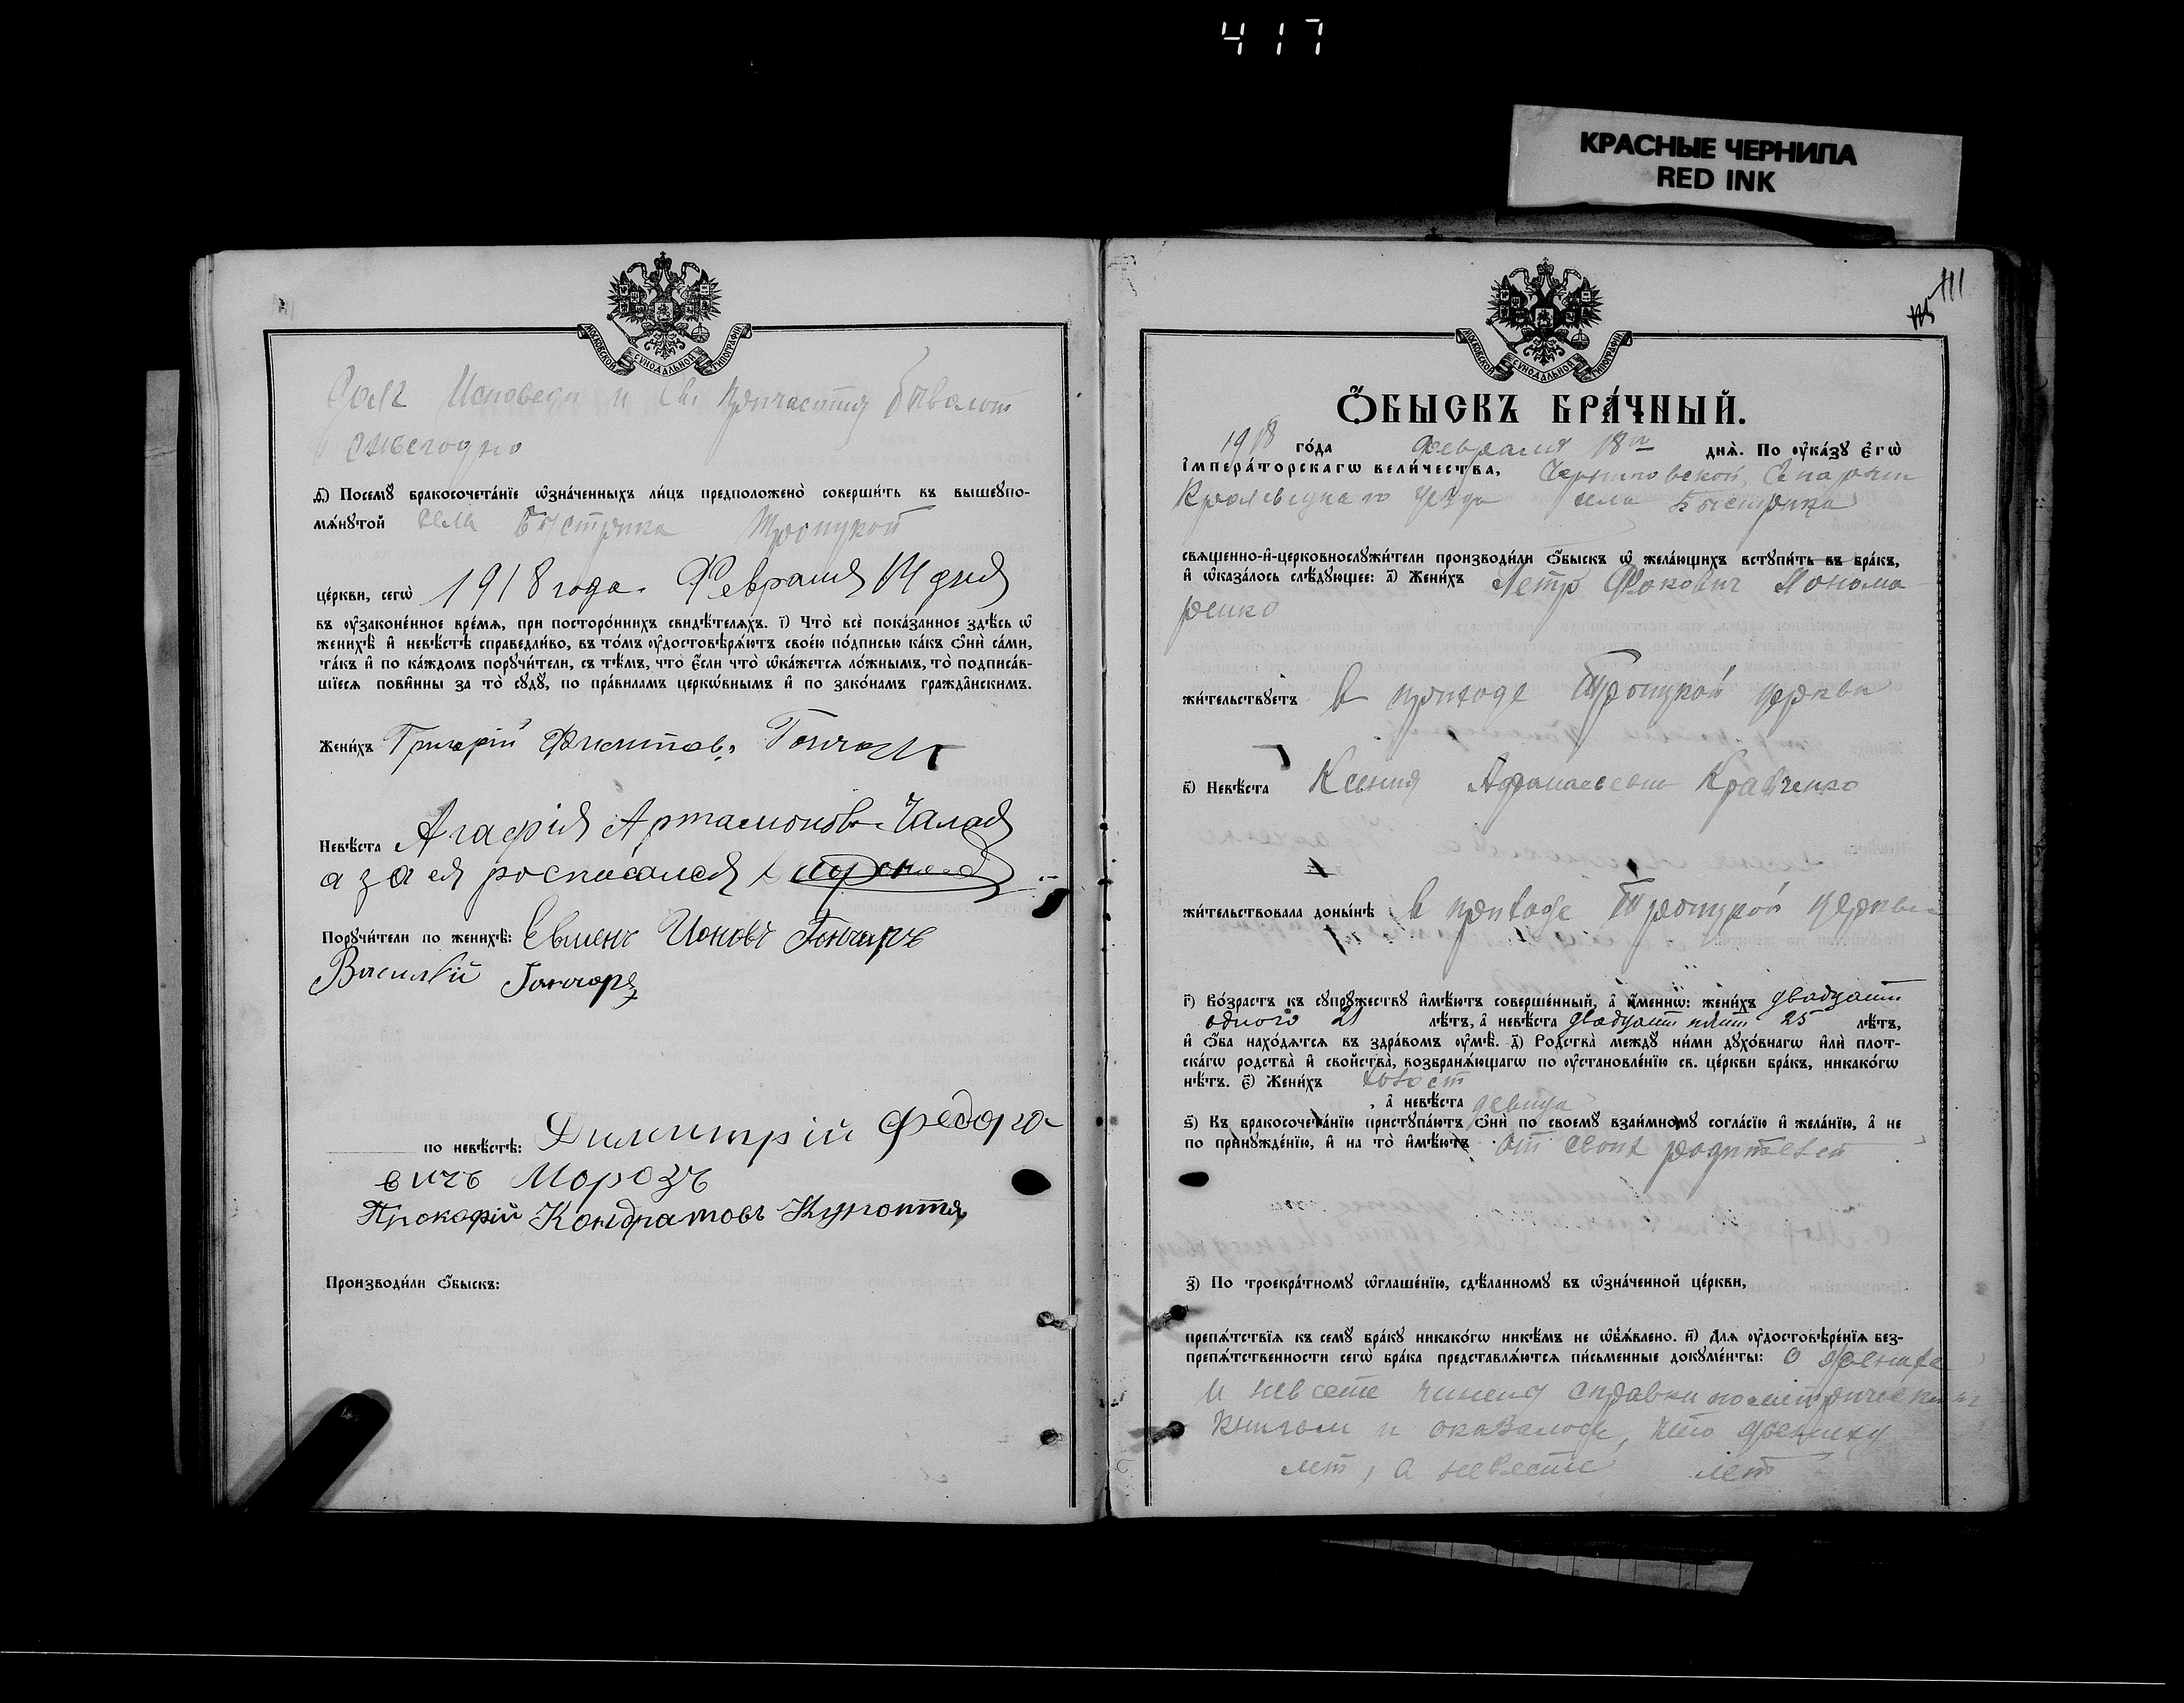 417
КРАСНЫЕ ЧЕРНИЛА
RED INK
МОСКОВСКОЙ СѴНОДАЛЬНОЙ ТИПОГРАФІИ
долг Исповеди и Св. Причастия бывают
ежегодно
ѳ҃) Посемꙋ̀ бракосочета́нїе ѡ҆зна́ченныхъ ли́цъ предположено̀ соверши́ть въ вышеꙋпо-
мѧ́нꙋтой села Быстрика Троицкой
це́ркви, сегѡ̀ 1918 года. Февраля 14 дня
въ ᲂу҆зако́ненное вре́мѧ, при посторо́ннихъ свидѣ́телѧхъ. і҃) Что̀ всѐ пока́занное здѣ́сь ѡ҆
женихѣ̀ и҆ невѣ́стѣ справедли́во, въ то́мъ ᲂу҆достовѣрѧ́ютъ свое́ю по́дписью ка́къ ѻ҆нѝ са́ми,
та́къ и҆ по ка́ждомъ порꙋчи́тели, съ тѣ́мъ, что̀ є҆́сли что̀ ѡ҆ка́жетсѧ ло́жнымъ, то̀ подписа́в-
шїесѧ пови́нны за то̀ сꙋдꙋ̀, по пра́виламъ церкѡ́внымъ и҆ по зако́намъ гражда́нскимъ.
Жени́хъ Григорій Гончаръ
Невѣ́ста Агафія Артамонов. Чалая
а за ея росписался
Порꙋчи́тели по женихѣ̀: Евмень Ионовъ Гончаръ
Василій Гончаръ
по невѣ́стѣ: Димитрій Федоро-
вичъ Морозъ
Прокофій Кондратовъ Куропятн
Производи́ли ѻ҆́быскъ:
111
МОСКОВСКОЙ СѴНОДАЛЬНОЙ ТИПОГРАФІИ
Ѻ҆́БЫСКЪ БРА́ЧНЫЙ.
1918 го́да февраля 18го днѧ̀. По ᲂу҆ка́зꙋ є҆гѡ̀
і҆мпера́торскагѡ вели́чества, Черниговской Епархии
Кролевецкаго Уезда села Быстрика
свѧщенно-и҆-церковнослꙋжи́тели производи́ли ѻ҆́быскъ ѡ҆ жела́ющихъ встꙋпи́ть въ бра́къ,
и҆ ѡ҆каза́лось слѣ́дꙋющее: а҃) Жени́хъ Петр Фокович Понома-
ренко
жи́тельствꙋетъ в приходе Троицкой церкви
в҃) Невѣ́ста Ксения Афанасьевна Кравченко
жи́тельствовала доны́нѣ в приходе Троицкой церкви
г҃) Во́зрастъ къ сꙋпрꙋ́жествꙋ и҆мѣ́ютъ соверше́нный, а҆ и҆́меннѡ: жени́хъ двадцати
одного 21 лѣ́тъ, а҆ невѣ́ста двадцати пяти 25 лѣ́тъ,
и҆ ѻ҆́ба нахо́дѧтсѧ въ здра́вомъ ᲂу҆мѣ̀. д҃) Родства̀ междꙋ̀ ни́ми дꙋхо́внагѡ и҆лѝ плот-
ска́гѡ родства̀ и҆ свойства̀, возбранѧ́ющагѡ по ᲂу҆становле́нїю св. це́ркви бра́къ, никако́гѡ
нѣ́тъ. є҃) Жени́хъ холост
, а҆ невѣ́ста девица
ѕ҃) Къ бракосочета́нїю пристꙋпа́ютъ ѻ҆нѝ по своемꙋ̀ взаи́мномꙋ согла́сїю и҆ жела́нїю, а҆ не
по принꙋжде́нїю, и҆ на то̀ и҆мѣ́ютъ от своих родителей
з҃) По троекра́тномꙋ ѡ҆глаше́нїю, сдѣ́ланномꙋ въ ѡ҆зна́ченной це́ркви,
препѧ́тствїѧ къ семꙋ̀ бра́кꙋ никако́гѡ никѣ́мъ не ѡ҆бъѧ́влено. и҃) Длѧ ᲂу҆достовѣре́нїѧ без-
препѧ́тственности сегѡ̀ бра́ка представлѧ́ютсѧ пи́сьменные докꙋме́нты: О женихе
и невесте чинены справки по метрическим
книгам и оказалось, что жениху
лет, а невесте лет